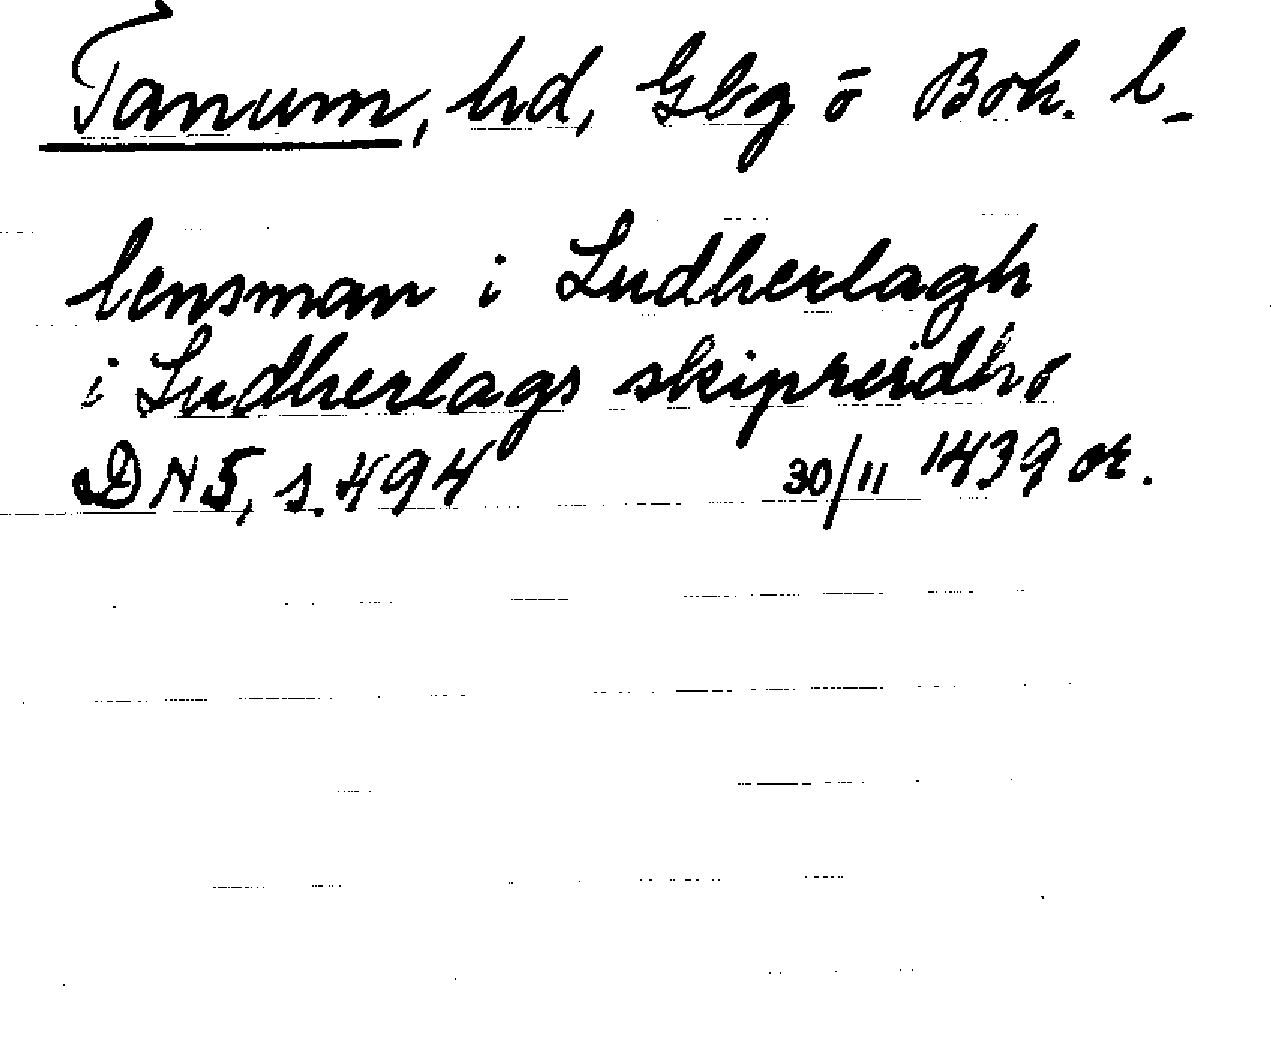 Tanum, hd, Gbg o Boh. l.
lensman i Ludherlagh
i Ludherlags skipreidho
DN 5, s. 494 30/11 1439 or.